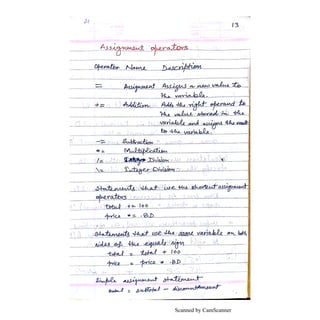 21
13
Assignment operators
Operator Name Description
= Assignment Assigns a new value to
the variable.
+= Addition Adds the right operand to
the value stored in the
variable and assigns the result
to the variable.
-= Subtraction
*= Multiplication
/= Division
\= Integer Division
Statements that use the shortcut assignment
operators
total += 100
price *= .8D
Statements that use the same variable on both
sides of the equals sign
total = total + 100
price = price * .8D
Simple assignment statement
total = subtotal - discountAmount
Scanned by CamScanner